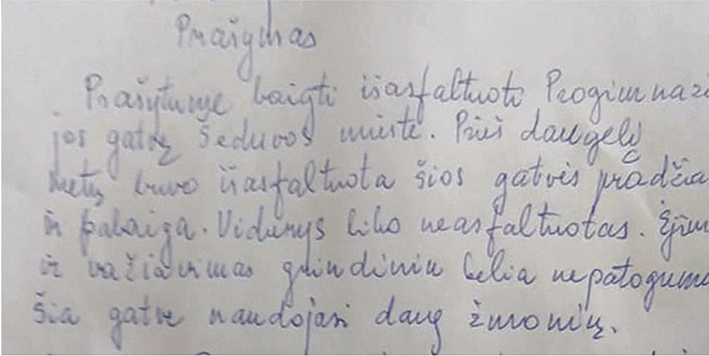 Prašymas
Prašytume baigti išasfaltuoti Progimnazi
jos gatvę Šeduvos mieste. Prieš daugelį
metų buvo išasfaltuota šios gatvės pradžia
ir pabaiga. Vidurys liko neasfaltuotas. Ėjim
ir važiavimas grindiniu kelia nepatogum
Šia gatve naudojasi daug žmonių.